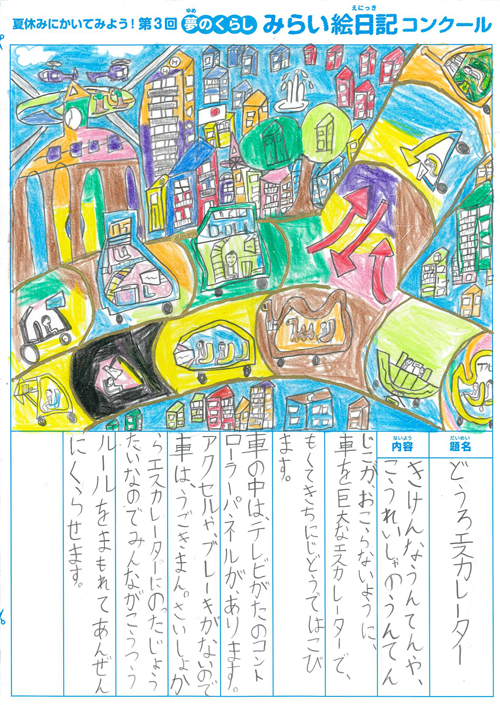 夏休みにかいてみよう!第3回 夢のくらし みらい絵日記コンクール
ゆめ
えにっき
だいめい
題名
どうろエスカレーター
ないよう
内容
きけんなうんてんや、
こうれいしゃのうんてん
じこがおこらないように、
車を巨大なエスカレーターで、
もくてきちにじどうではこび
ます。
車の中は、テレビがたのコント
ローラーパネルがあります。
アクセルや、ブレーキがないので
車は、うごきまん。さいしょか
らエスカレーターにのったじょう
たいなのでみんながこうつう
ルールをまもれてあんぜん
にくらせます。